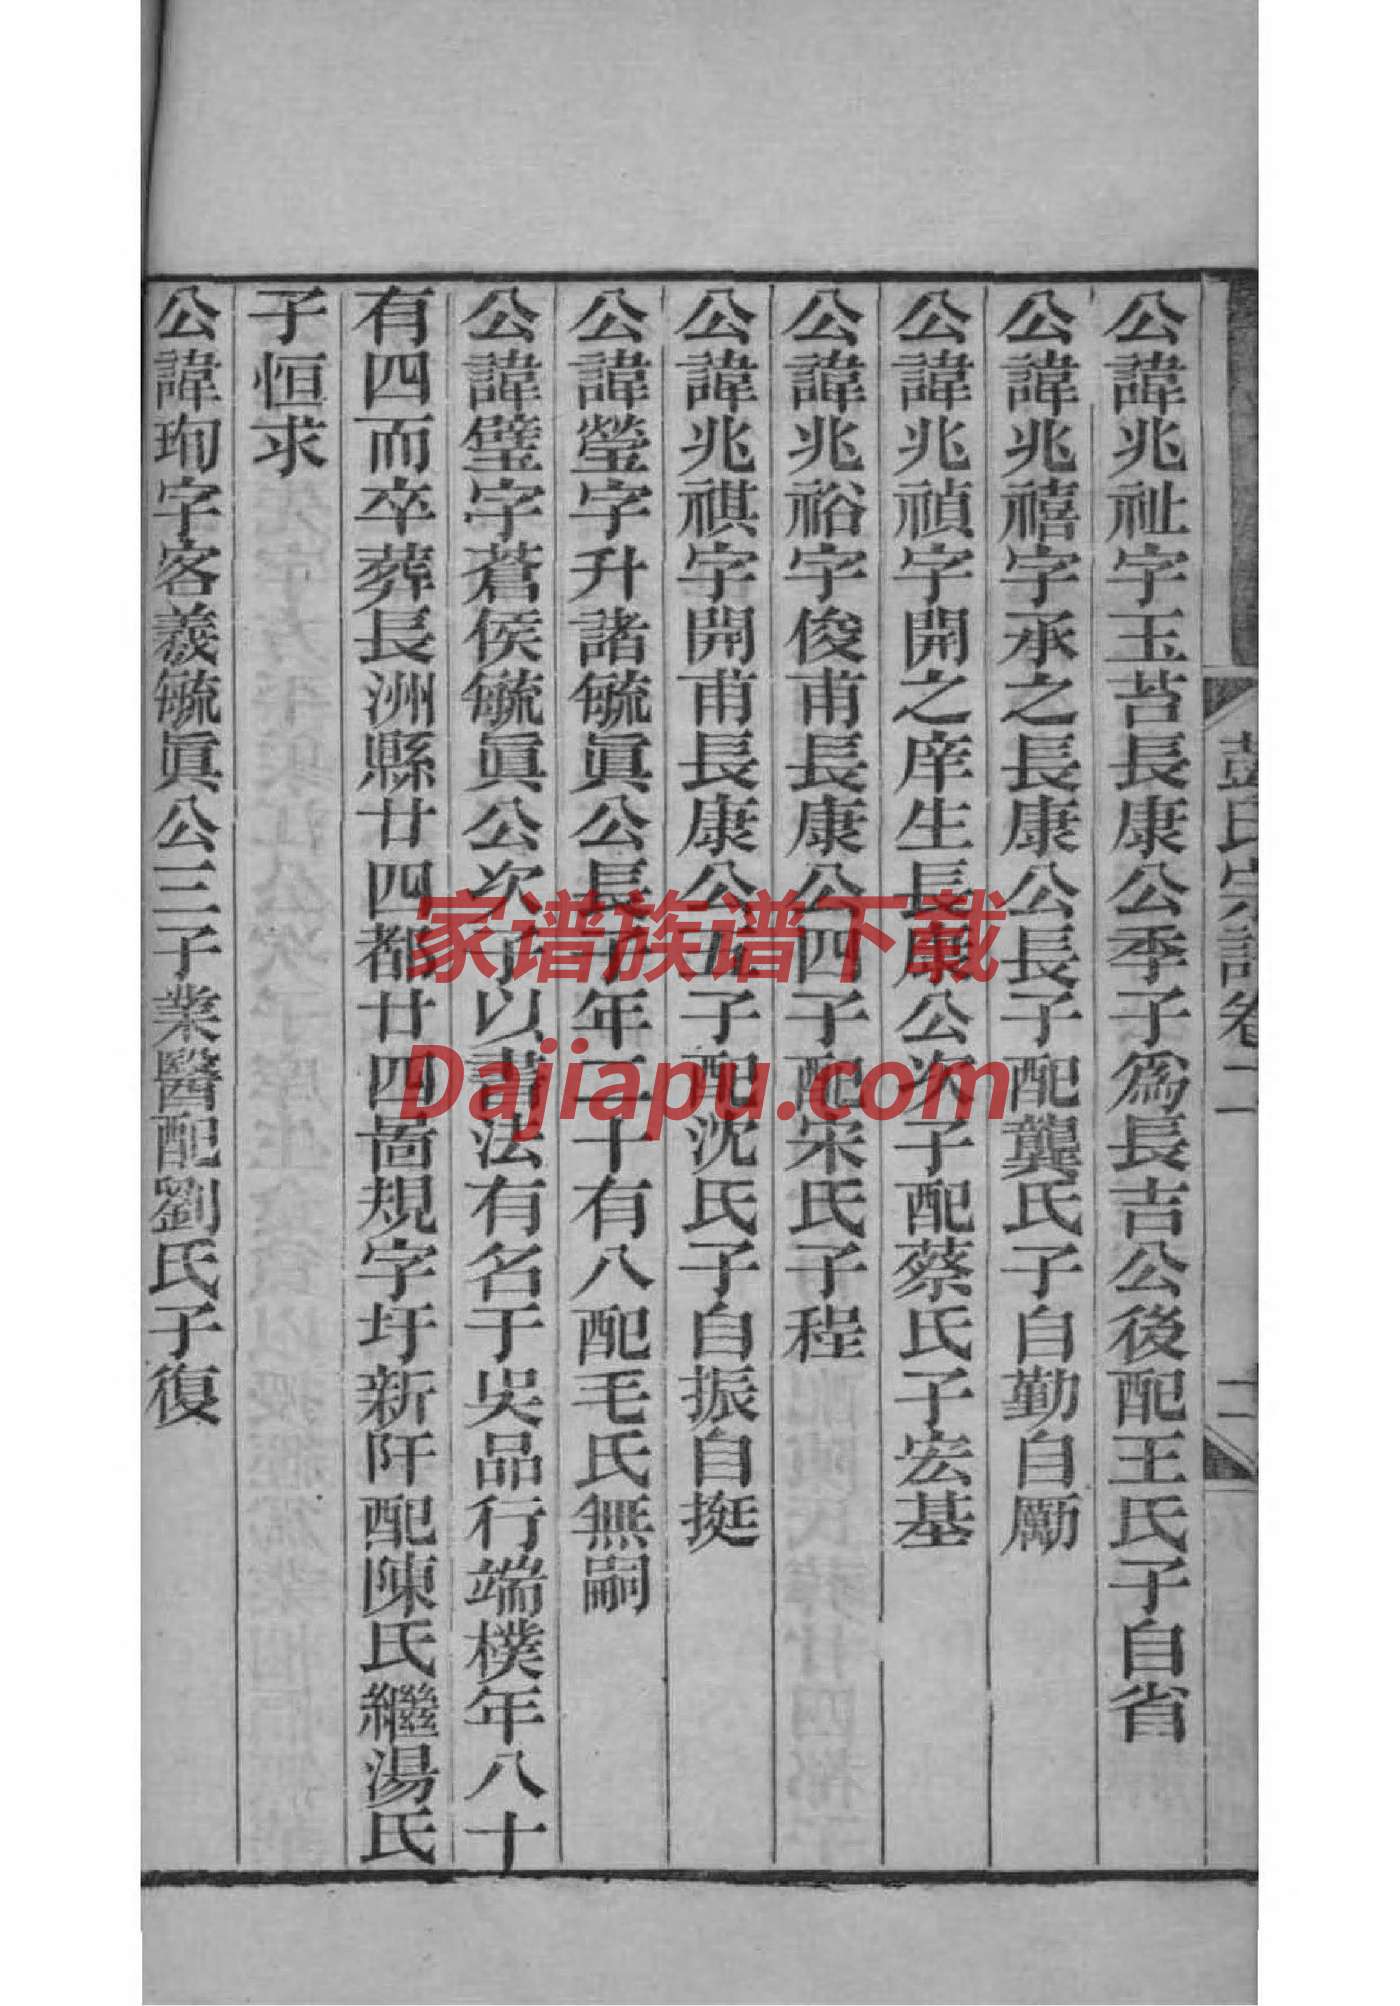 公諱兆祉字玉苔長康公季子爲長吉公後配王氏子自省
公諱兆禧字承之長康公長子配龔氏子自勤自勵
公諱兆禎字開之庠生長康公次子配蔡氏子宏基
公諱兆裕字俊甫長康公四子配宋氏子程
公諱兆祺字開甫長康公五子配沈氏子自振自挺
公諱瑩字升諸毓眞公長子年二十有八配毛氏無嗣
公諱璧字蒼侯毓眞公次子以書法有名于吳品行端樸年八十
有四而卒葬長洲縣廿四都廿四啚規字圩新阡配陳氏繼湯氏
子恒求
公諱珣字客義毓眞公三子業醫配劉氏子復
彭氏宗譜卷二
家谱族谱下载
Dajiapu.com